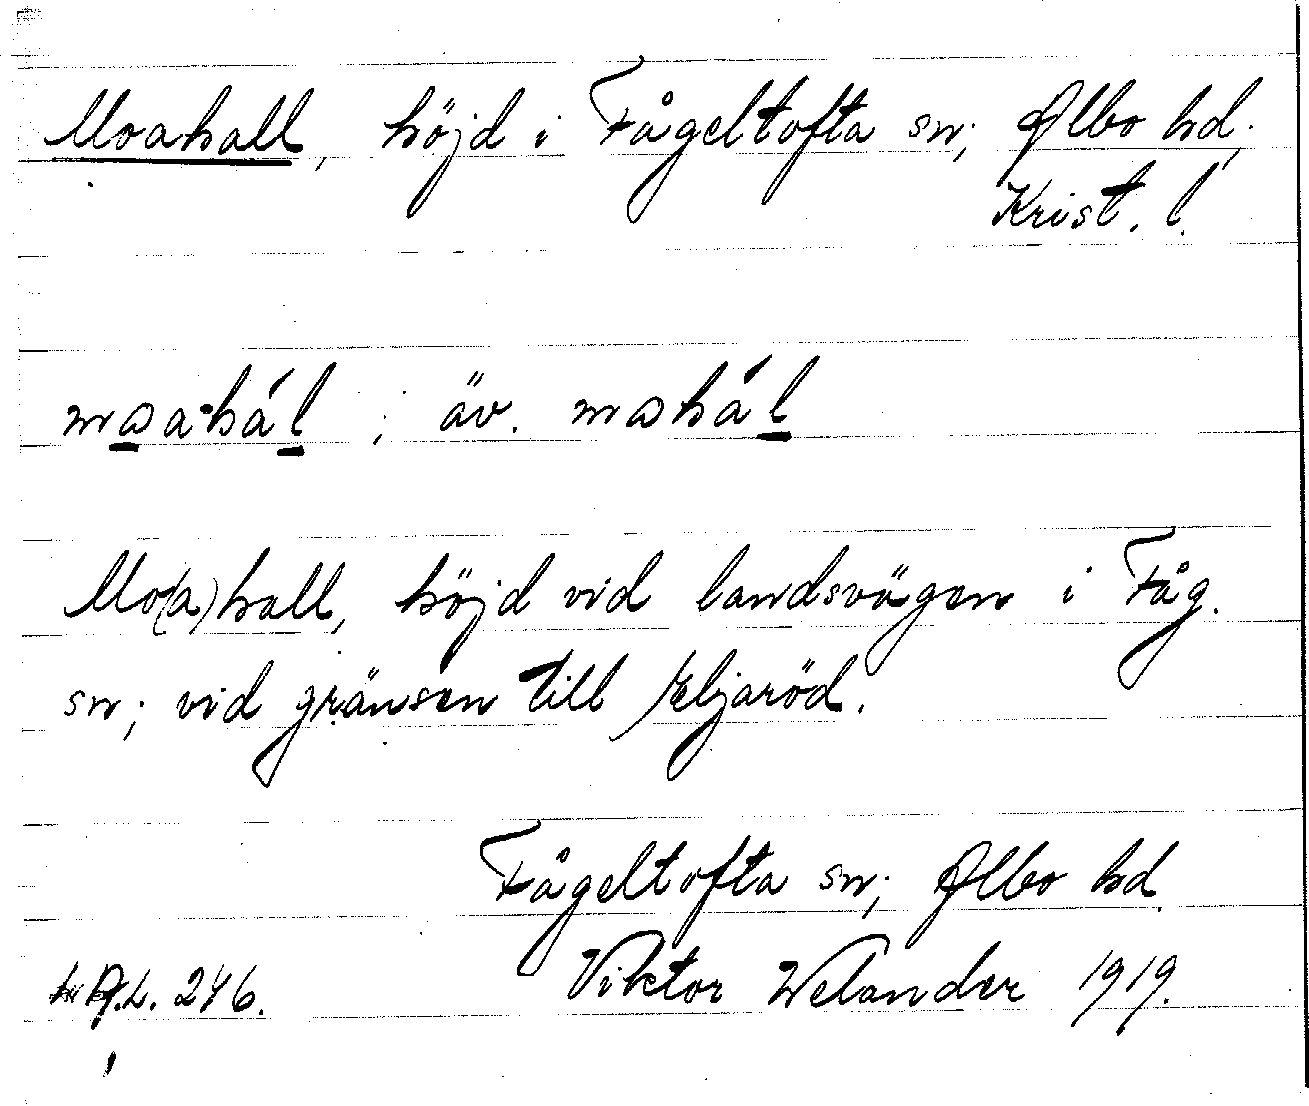 Moahall, höjd i Fågeltofta sn; Ølbo hd;
Krist. l.
maahál ; äv. mahál
Mo(a)hall, höjd vid landsvägen i Fåg.
sn; vid gränsen till Eljaröd.
Fågeltofta sn; Ølbo hd.
Viktor Welander 1919.
246.